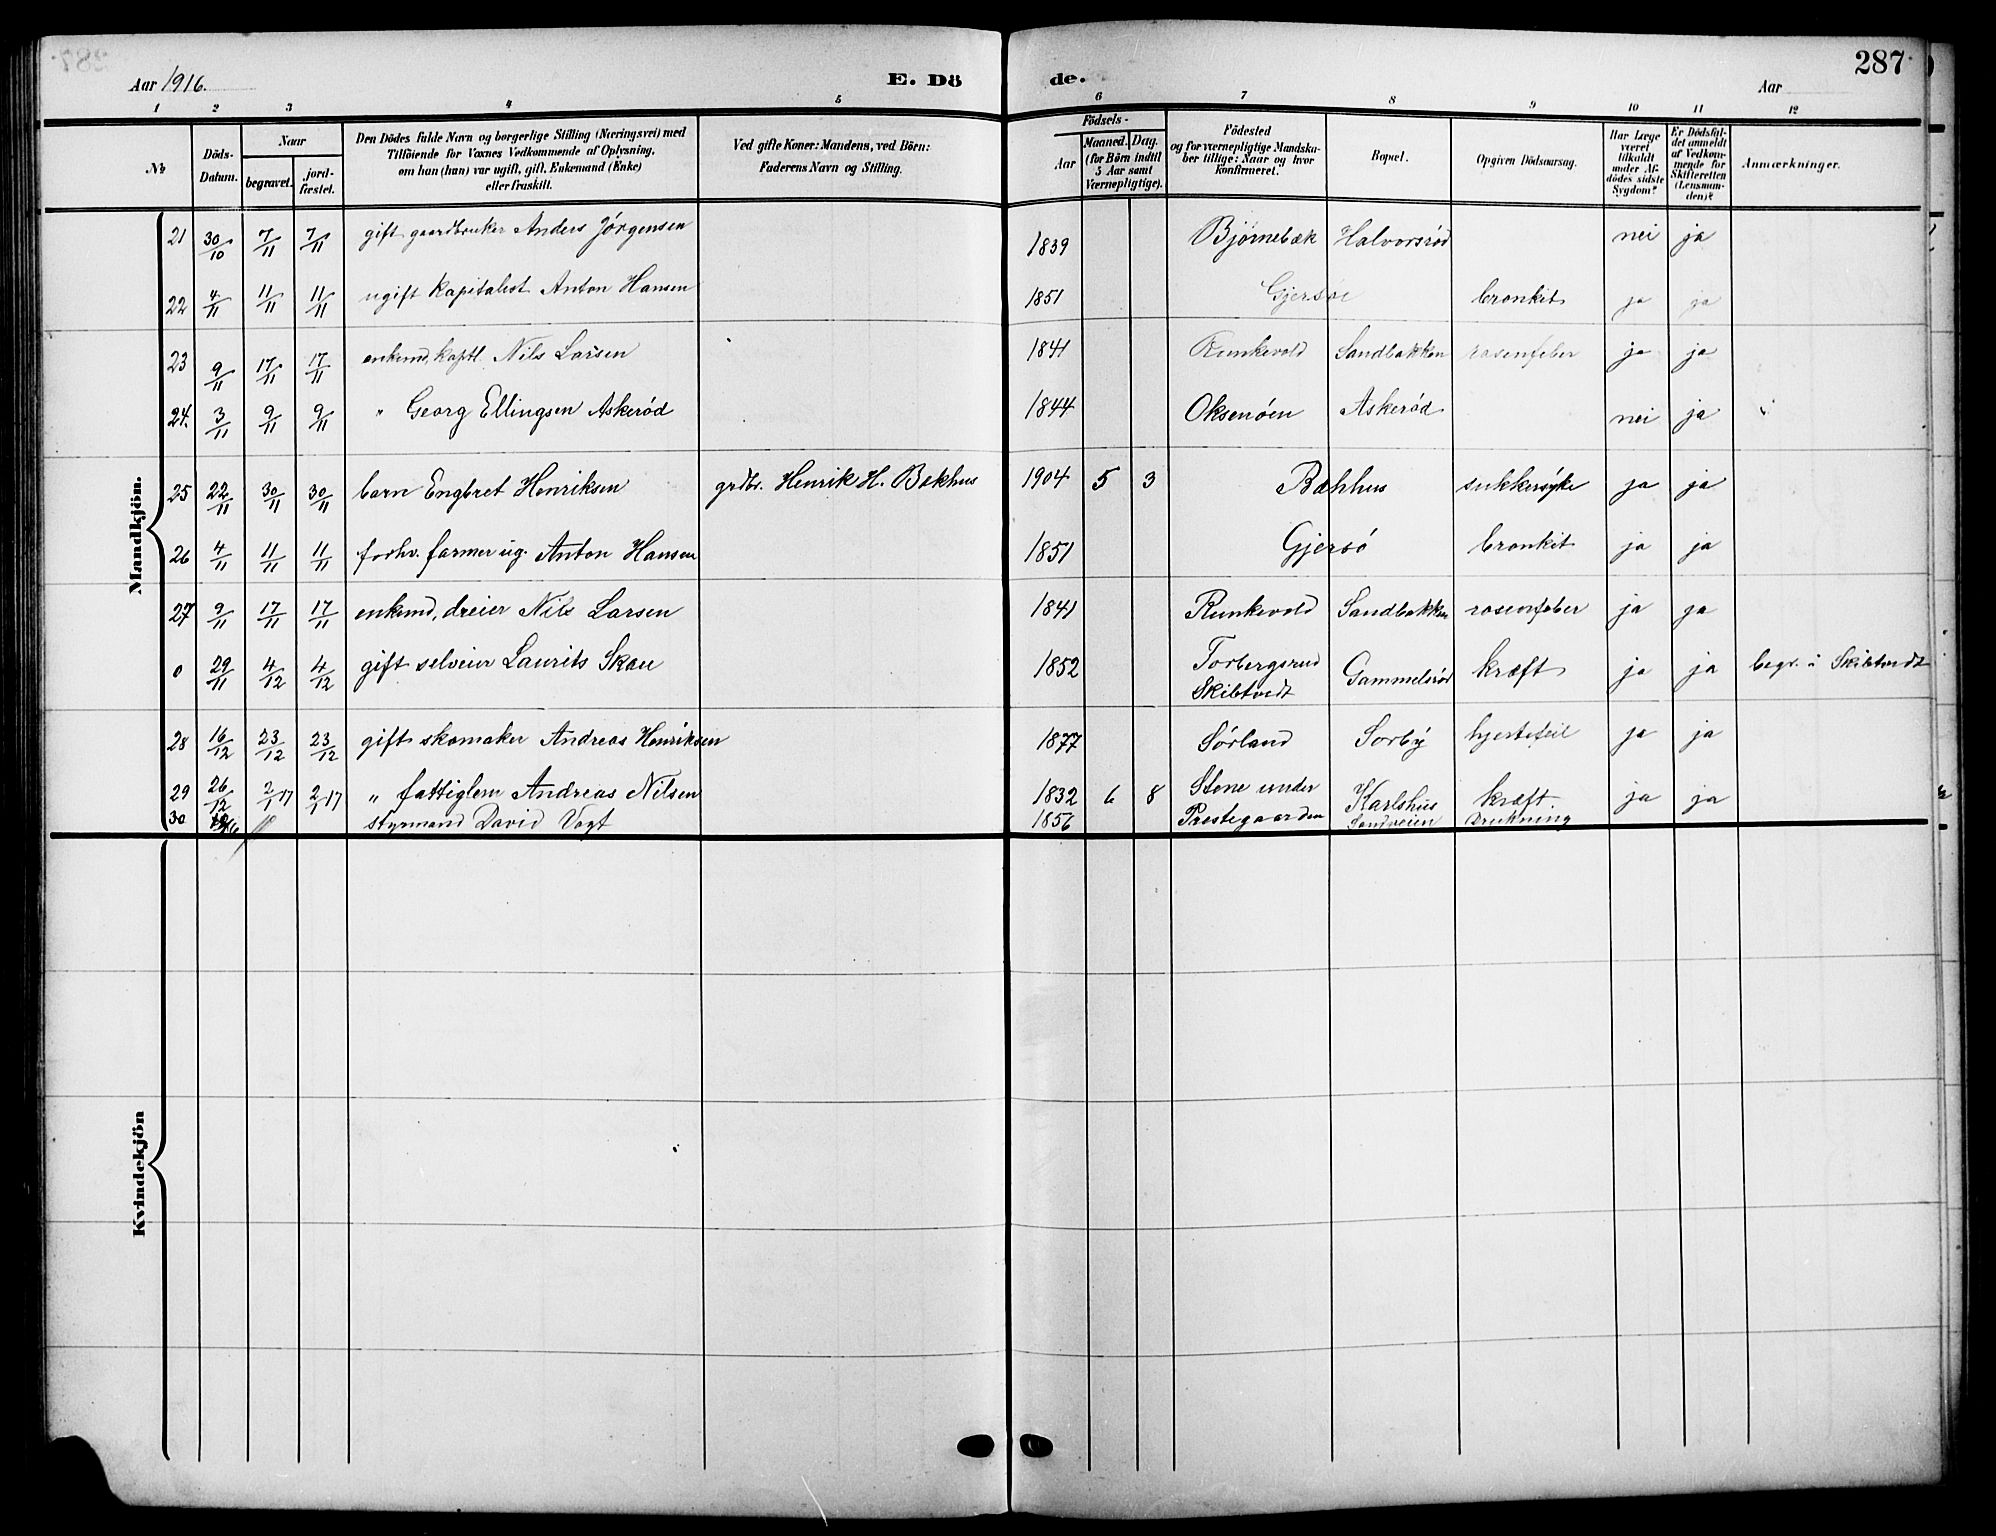 287
Aar 1916.
E. Dö
de.
Aar
1 2 3 4 5 6 7 8 9 10 11 12
No
Döds-Datum.
Naar
begravet.
jordfæstet.
Den Dödes fulde Navn og borgerlige Stilling (Næringsvei) med
Tilföiende for Voxnes Vedkommende af Oplysning,
om han (hun) var ugift, gift, Enkemand (Enke)
eller fraskilt.
Ved gifte Koner: Mandens, ved Börn:
Faderens Navn og Stilling.
Födsels-
Aar
Maaned. Dag.
(for Börn indtil
5 Aar samt
Værnepligtige).
Födested
og for værnepligtige Mandskaber tillige: Naar og hvor
konfirmeret.
Bopæl.
Opgiven Dödsaarsag.
Har Læge
været
tilkaldt
under Afdödes sidste
Sygdom?
Er Dödsfaldet anmeldt
af Vedkommende for
Skifteretten
(Lensmanden)?
Anmærkninger.
Mandkjön.
21 30/10 7/11 7/11 gift gaardbruker Anders Jørgensen 1839 Bjørnebæk Halvorsrød nei ja
22 4/11 11/11 11/11 ugift kapitalist Anton Hansen 1851 Gjersøe bronkit ja ja
23 9/11 17/11 17/11 enkemd. kaptl. Nils Larsen 1841 Runkevold Sandbakken rosenfeber ja ja
24. 3/11 9/11 9/11 " Georg Ellingsen Askerød 1844 Oksenöen Askerød nei ja
25 22/11 30/11 30/11 barn Engbret Henriksen grdbr. Henrik H. Bakhus 1904 5 3 Bakhus sukkersyke ja ja
26 4/11 11/11 11/11 forhv. farmer ug. Anton Hansen 1851 Gjersö bronkit ja ja
27 9/11 17/11 17/11 enkemd. dreier Nils Larsen 1841 Runkevold Sandbakken rosenfeber ja ja
0 29/11 4/12 4/12 gift selveier Laurits Skau 1852 Torbergsrud Skibtvedt Gammelsrød kræft ja ja begr. i Skibtvedt
28 16/12 23/12 23/12 gift skomaker Andreas Henriksen 1877 Sörland Sorby hjertefeil ja ja
29 26/12 2/1 17 2/1 17 " fattiglem Andreas Nilsen 1832 6 8 Stene under Prestegaarden Karlshus kræft. ja ja
30 styrmand David Vogt 1856 Sandveien Drukning
Kvindekjön